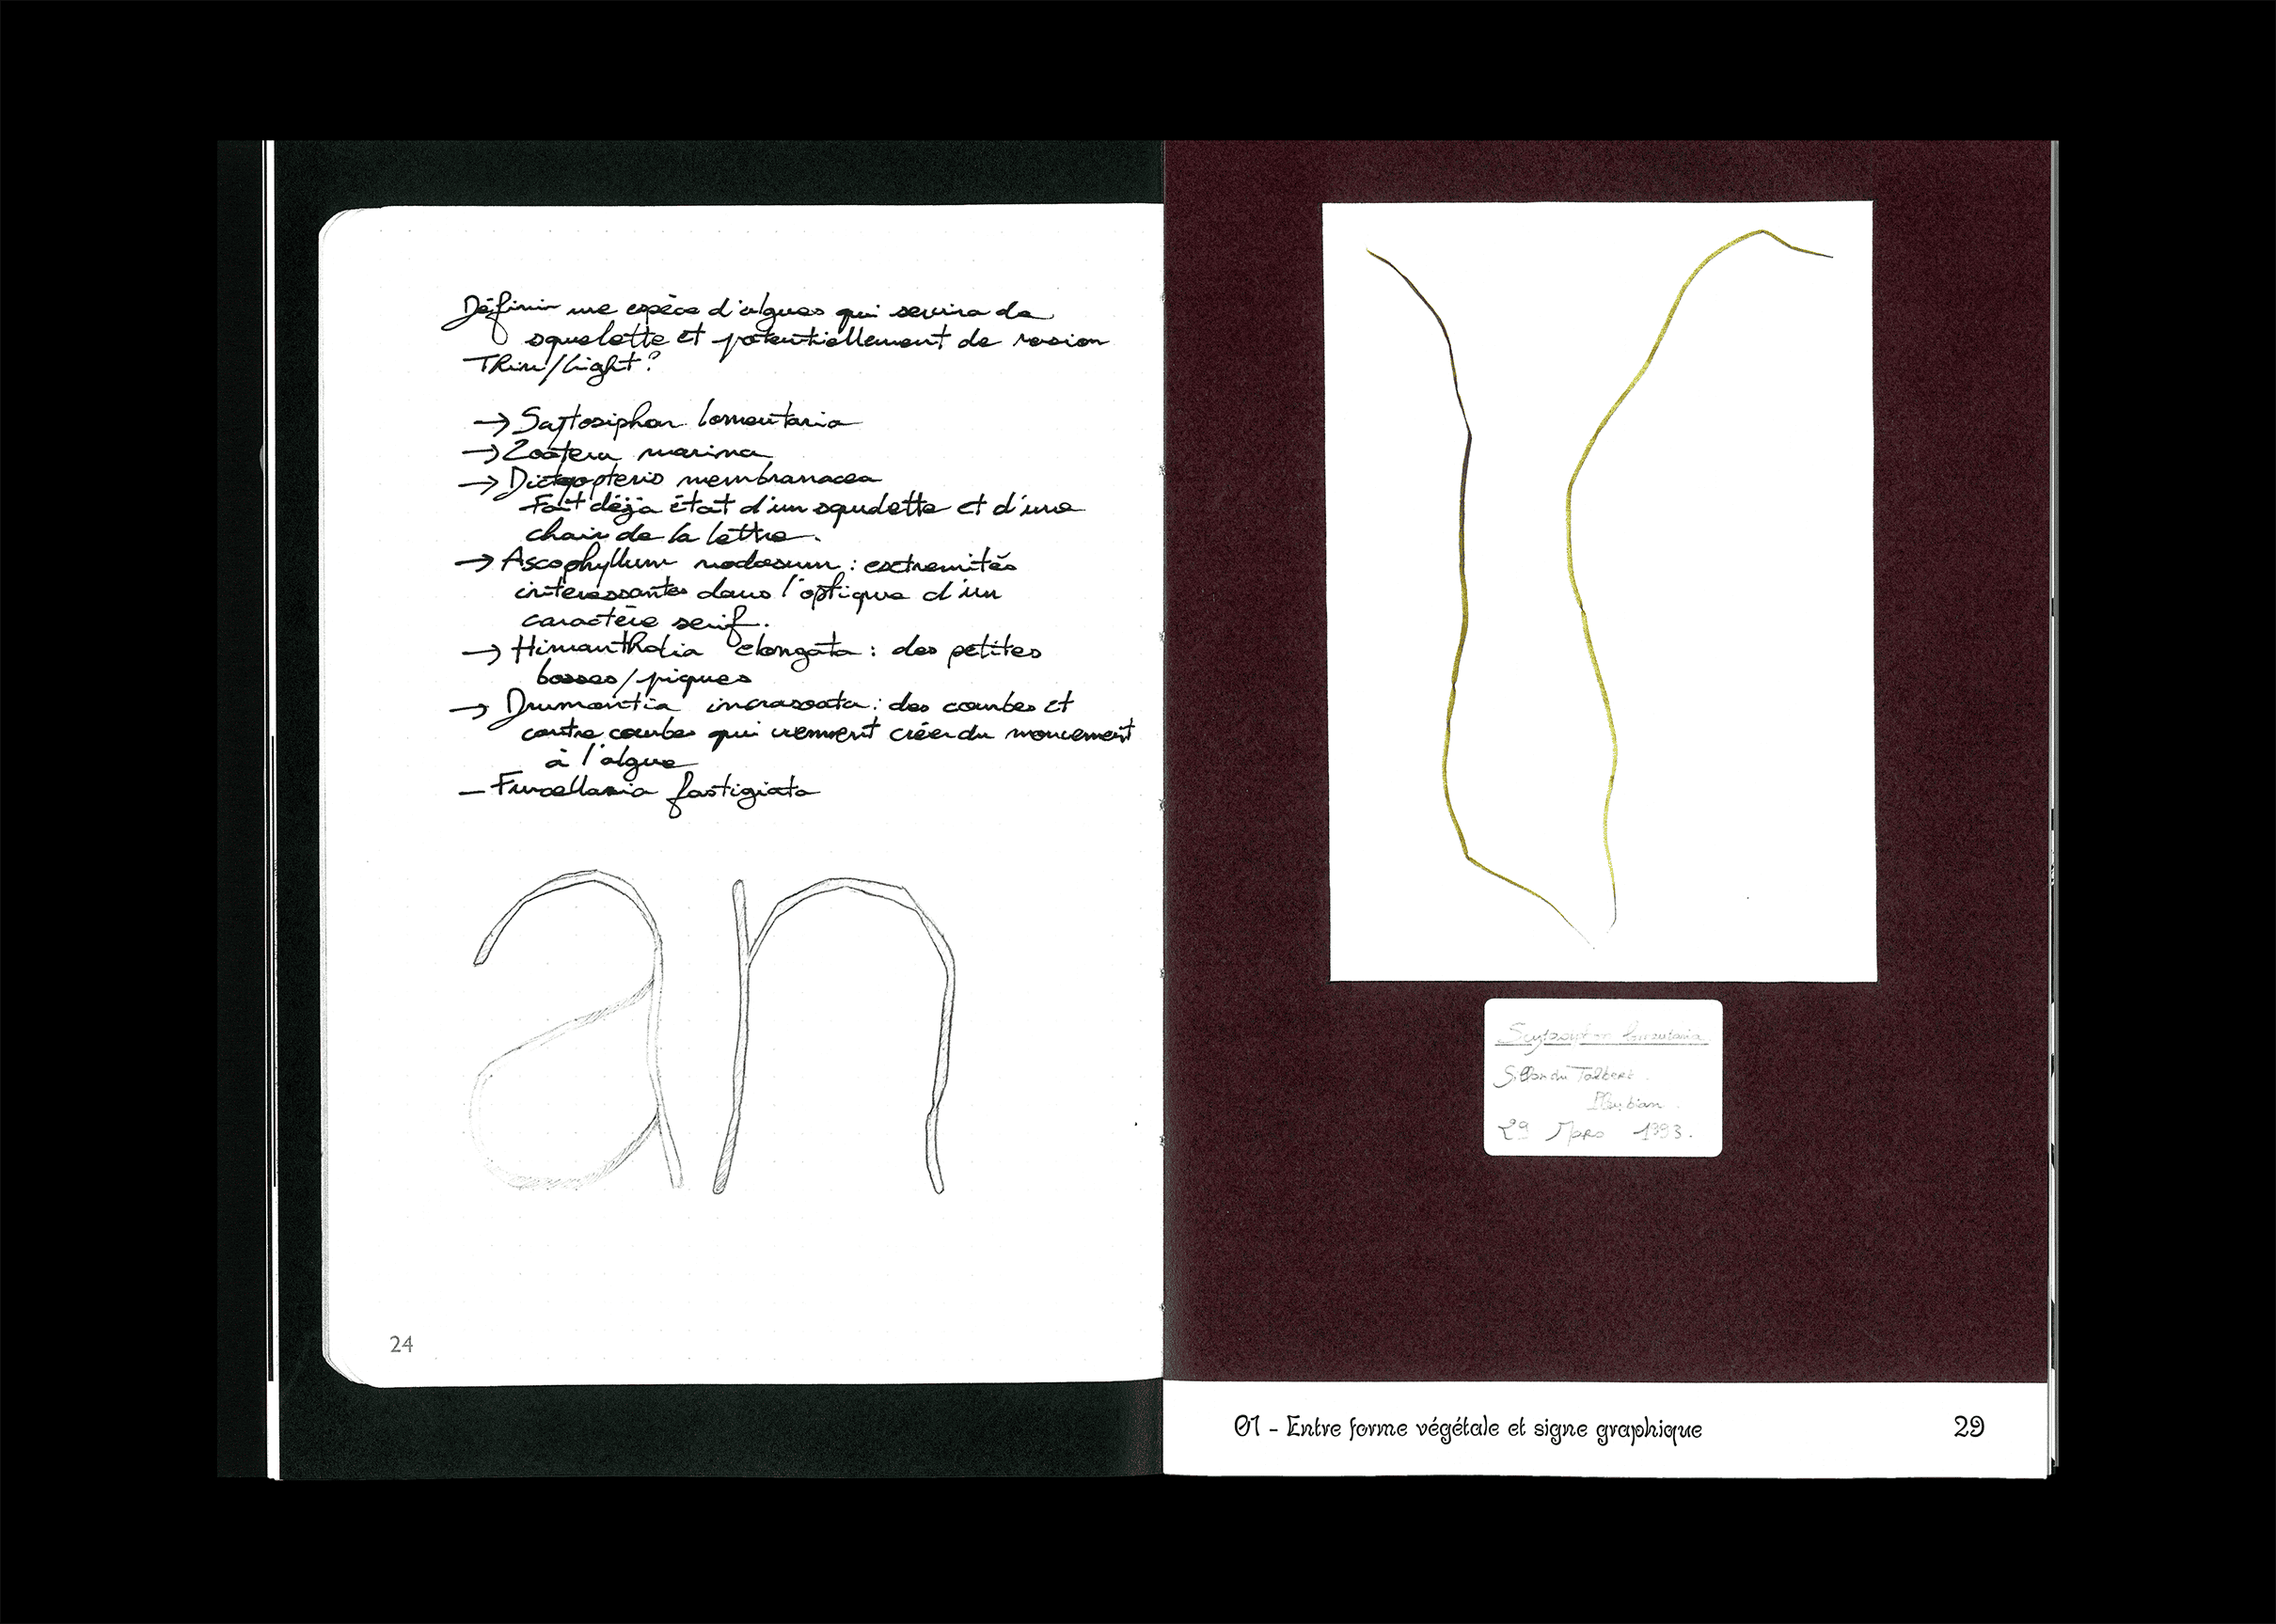 Définir une espèce d'algues qui servira de
squelette et potentiellement de version
Thin/Light?
→ Scytosiphon lomentaria
→ Zostera marina
→ Dictyopteris membranacea
Fait déjà état d'un squelette et d'une
chair de la lettre.
→ Ascophyllum nodosum : extremités
intéressantes dans l'optique d'un
caractère serif.
→ Himanthalia elongata : des petites
bosses/piques
→ Dumontia incrassata : des courbes et
contre courbes qui viennent créer du mouvement
à l'algue
– Furcellaria fastigiata
an
24
Scytosiphon lomentaria
Sillon du Talbert.
Pleubian.
29 Mars 1993.
01 – Entre forme végétale et signe graphique
29